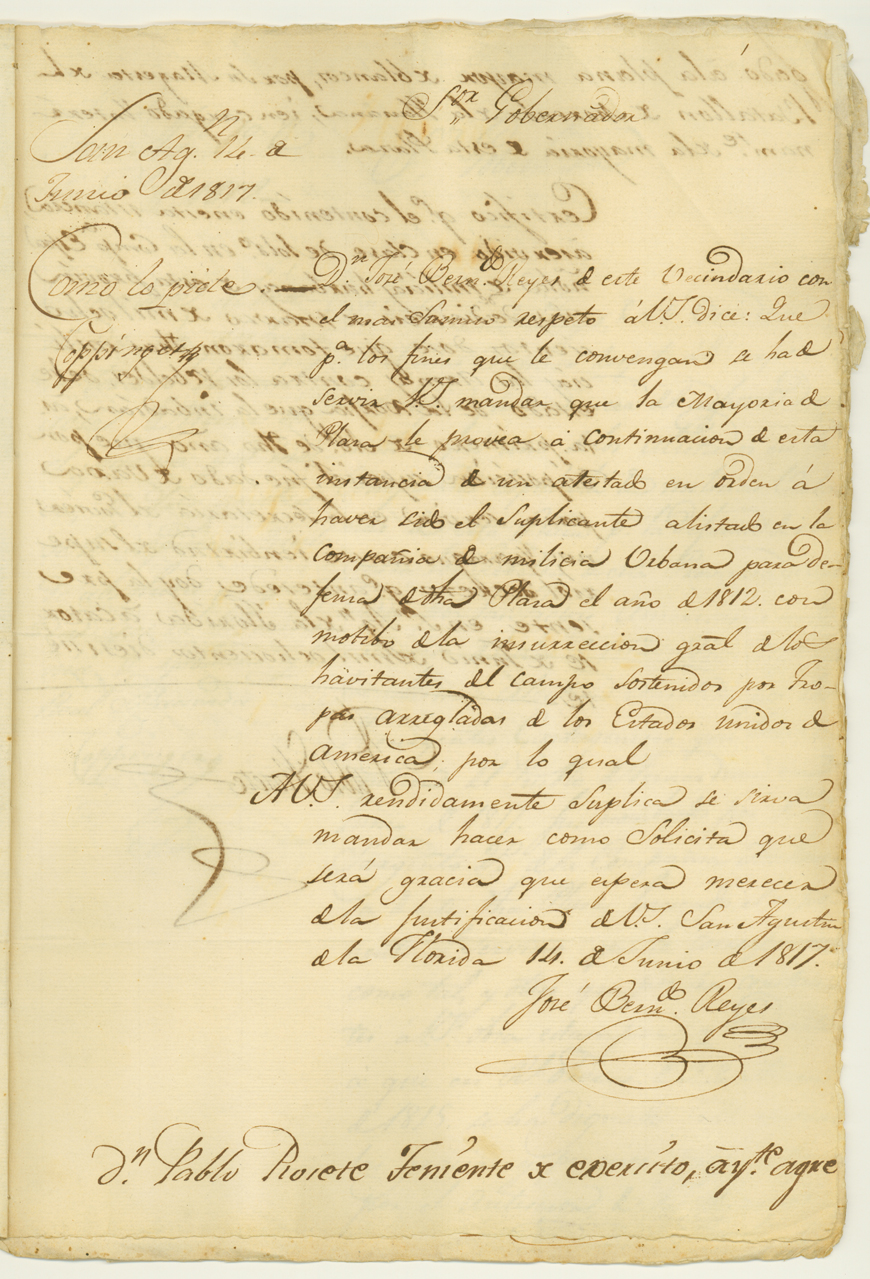 Sor. Gobernador
San Agn. 14. de
Junio de 1817.
Como lo pide.
Coppinger
Dn. José Berndo. Reyes de este Vecindario con
el mas Sumiso respeto á V.S. dice: Que
pa. los fines que le convengan se ha de
servir V.S. mandar que la Mayoria de
Plaza le provea á continuacion de esta
instancia de un atestado en orden á
haver sido el Suplicante alistado en la
Compañia de milicia Urbana para de-
fensa de dha Plaza el año de 1812. con
motibo de la insurreccion gral de los
havitantes del campo sostenidos por tro-
pas arregladas de los Estados unidos de
america, por lo qual
A V.S. rendidamente Suplica se sirva
mandar hacer como Solicita que
será gracia que espera merecer
de la justificacion de V.S. San Agustin
de la Florida 14. de Junio de 1817.
José Berndo. Reyes
Dn. Pablo Rosete Teniente x exercito, ayte. agre